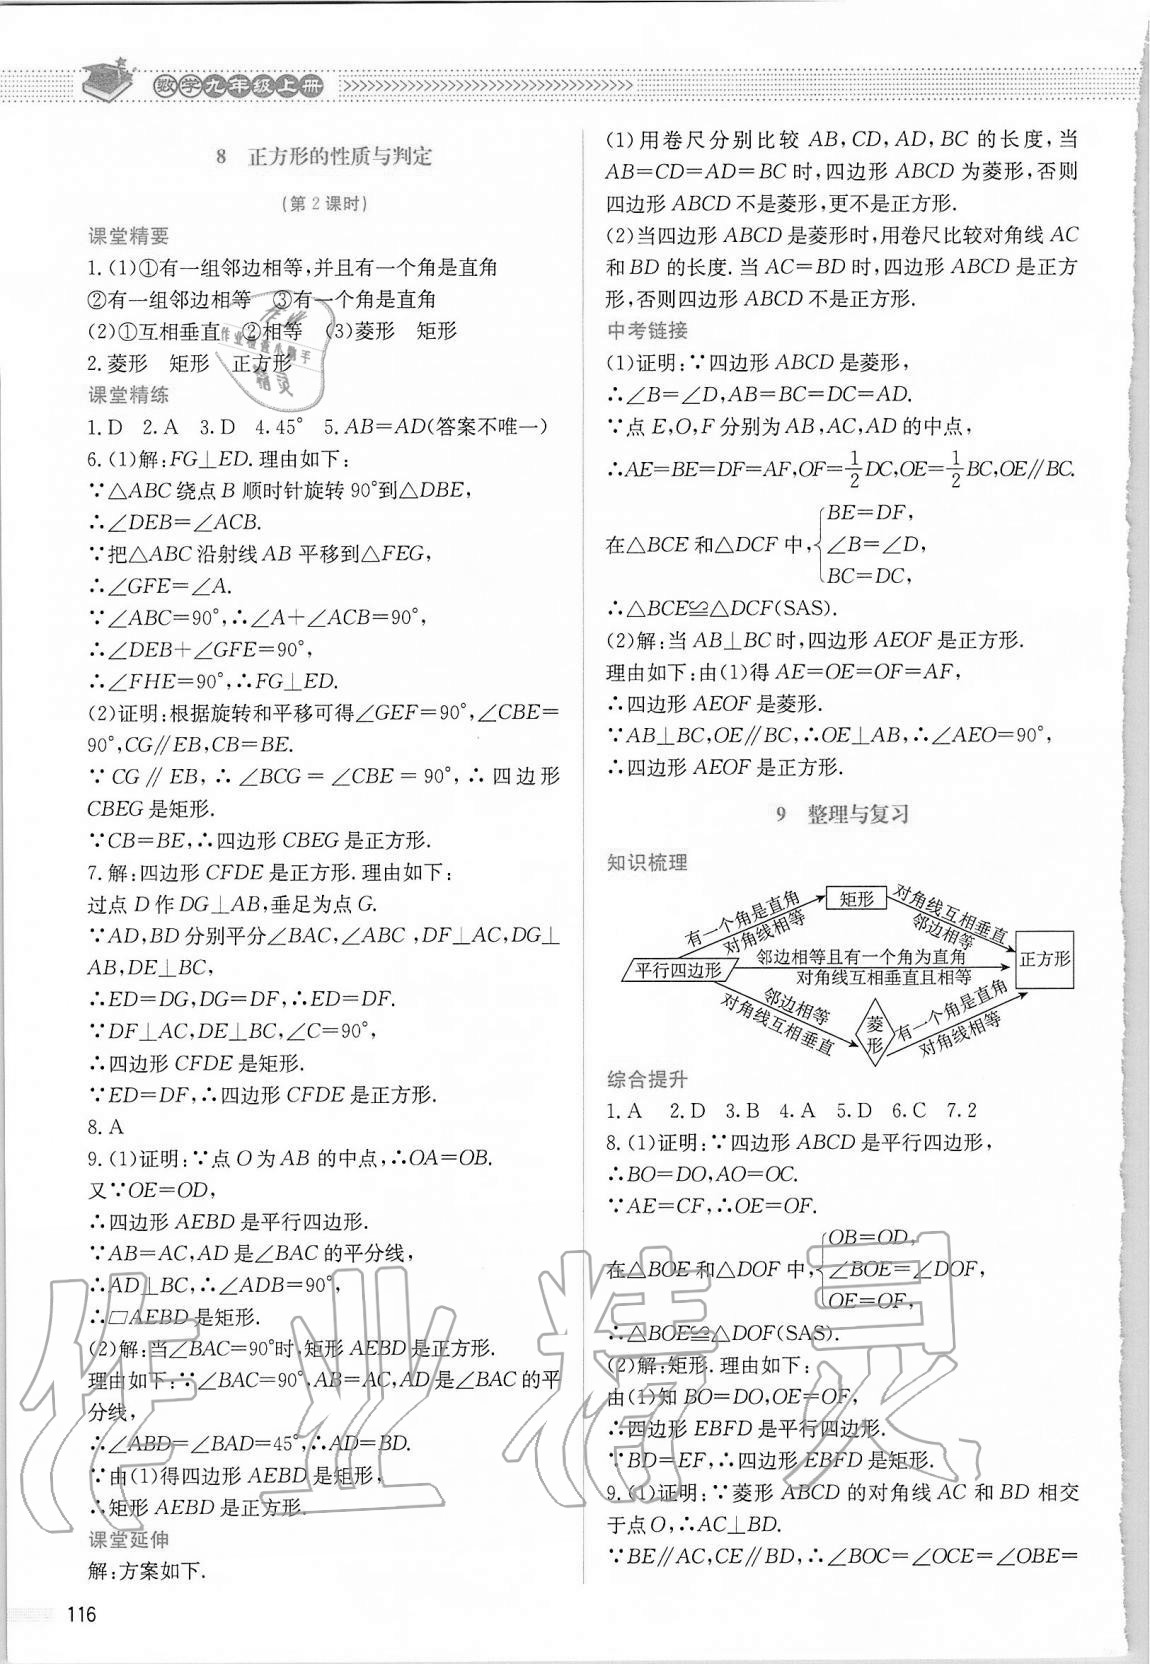 数学九年级上册
8 正方形的性质与判定
(第2课时)
课堂精要
1.(1)①有一组邻边相等,并且有一个角是直角
②有一组邻边相等 ③有一个角是直角
(2)①互相垂直 ②相等 (3)菱形 矩形
2.菱形 矩形 正方形
课堂精练
1.D 2.A 3.D 4.45° 5.AB=AD(答案不唯一)
6.(1)解:FG⊥ED.理由如下:
∵△ABC绕点B顺时针旋转90°到△DBE,
∴∠DEB=∠ACB.
∵把△ABC沿射线AB平移到△FEG,
∴∠GFE=∠A.
∵∠ABC=90°,∴∠A+∠ACB=90°,
∴∠DEB+∠GFE=90°,
∴∠FHE=90°,∴FG⊥ED.
(2)证明:根据旋转和平移可得∠GEF=90°,∠CBE=
90°,CG∥EB,CB=BE.
∵CG∥EB,∴∠BCG=∠CBE=90°,∴四边形
CBEG是矩形.
∵CB=BE,∴四边形CBEG是正方形.
7.解:四边形CFDE是正方形.理由如下:
过点D作DG⊥AB,垂足为点G.
∵AD,BD分别平分∠BAC,∠ABC,DF⊥AC,DG⊥
AB,DE⊥BC,
∴ED=DG,DG=DF,∴ED=DF.
∵DF⊥AC,DE⊥BC,∠C=90°,
∴四边形CFDE是矩形.
∵ED=DF,∴四边形CFDE是正方形.
8.A
9.(1)证明:∵点O为AB的中点,∴OA=OB.
又∵OE=OD,
∴四边形AEBD是平行四边形.
∵AB=AC,AD是∠BAC的平分线,
∴AD⊥BC,∴∠ADB=90°,
∴□AEBD是矩形.
(2)解:当∠BAC=90°时,矩形AEBD是正方形.
理由如下:∵∠BAC=90°,AB=AC,AD是∠BAC的平
分线,
∴∠ABD=∠BAD=45°,∴AD=BD.
∵由(1)得四边形AEBD是矩形,
∴矩形AEBD是正方形.
课堂延伸
解:方案如下.
116
(1)用卷尺分别比较AB,CD,AD,BC的长度,当
AB=CD=AD=BC时,四边形ABCD为菱形,否则
四边形ABCD不是菱形,更不是正方形.
(2)当四边形ABCD是菱形时,用卷尺比较对角线AC
和BD的长度.当AC=BD时,四边形ABCD是正方
形,否则四边形ABCD不是正方形.
中考链接
(1)证明:∵四边形ABCD是菱形,
∴∠B=∠D,AB=BC=DC=AD.
∵点E,O,F分别为AB,AC,AD的中点,
∴AE=BE=DF=AF,OF=1/2DC,OE=1/2BC,OE∥BC.
在△BCE和△DCF中,{BE=DF,
∠B=∠D,
BC=DC,
∴△BCE≌△DCF(SAS).
(2)解:当AB⊥BC时,四边形AEOF是正方形.
理由如下:由(1)得AE=OE=OF=AF,
∴四边形AEOF是菱形.
∵AB⊥BC,OE∥BC,∴OE⊥AB,∴∠AEO=90°,
∴四边形AEOF是正方形.
9 整理与复习
知识梳理
有一个角是直角
对角线相等
矩形
对角线互相垂直
邻边相等
平行四边形
邻边相等且有一个角为直角
对角线互相垂直且相等
正方形
邻边相等
对角线互相垂直
菱形
有一个角是直角
对角线相等
综合提升
1.A 2.D 3.B 4.A 5.D 6.C 7.2
8.(1)证明:∵四边形ABCD是平行四边形,
∴BO=DO,AO=OC.
∵AE=CF,∴OE=OF.
在△BOE和△DOF中,{OB=OD,
∠BOE=∠DOF,
OE=OF,
∴△BOE≌△DOF(SAS).
(2)解:矩形.理由如下:
由(1)知BO=DO,OE=OF,
∴四边形EBFD是平行四边形.
∵BD=EF,∴四边形EBFD是矩形.
9.(1)证明:∵菱形ABCD的对角线AC和BD相交
于点O,∴AC⊥BD.
∵BE∥AC,CE∥BD,∴∠BOC=∠OCE=∠OBE=
作业精灵